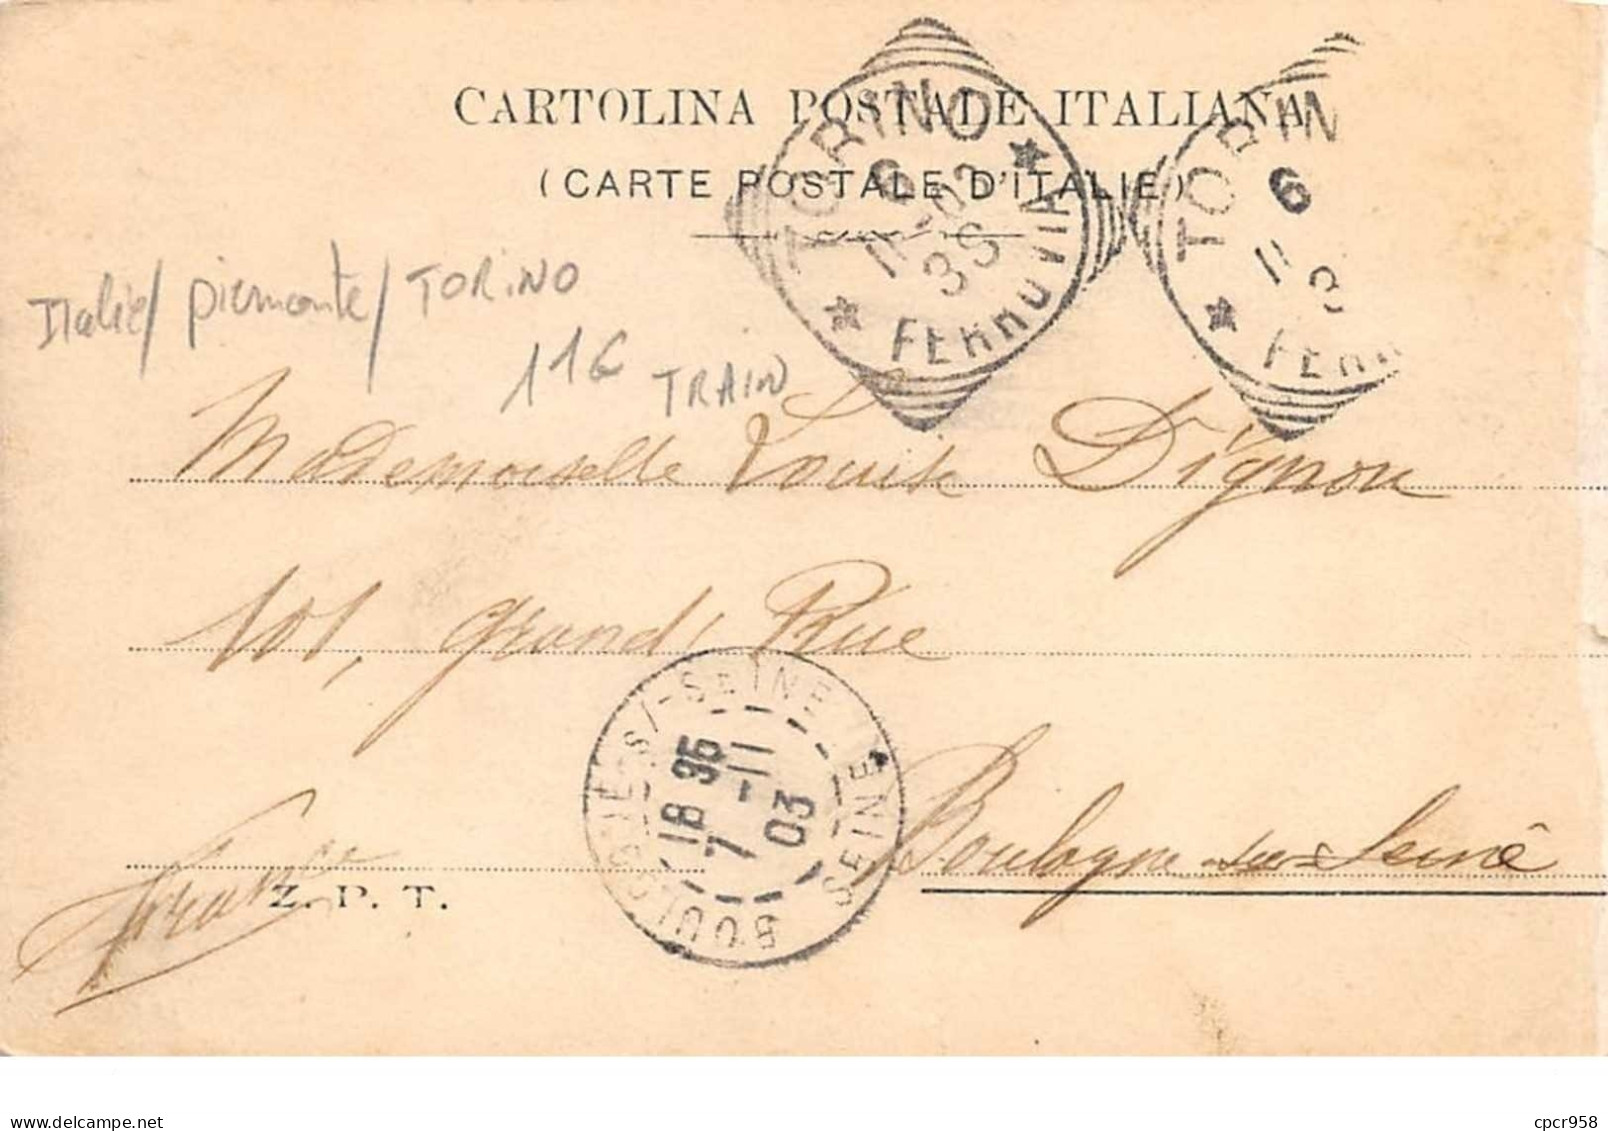 CARTOLINA POSTALE ITALIANA
(CARTE POSTALE D'ITALIE)
TORINO
6
11
3S
FERROVIA
TORIN
6
11
FERR
Italie / piemonte / TORINO
11€ TRAIN
Mademoiselle Louise Dignon
101, Grande Rue
BOULOGNE-S/-SEINE
SEINE
18 35
7 -11
03
Boulogne sur Seine
France
Z. P. T.
cpcr958